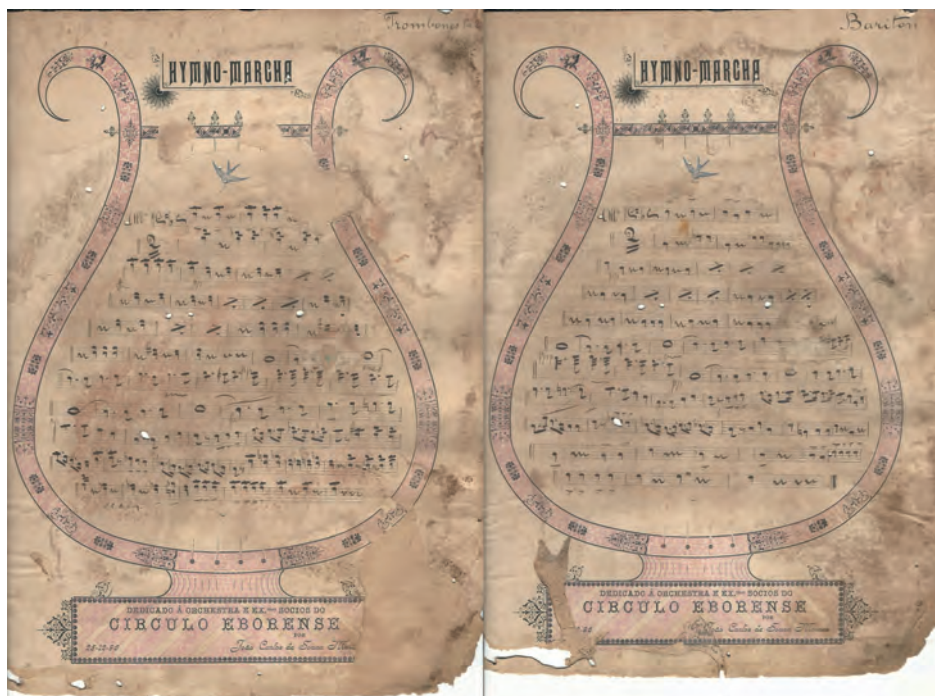 Trombones
HYMNO-MARCHA
DEDICADO Á ORCHESTRA E EX.mos SOCIOS DO
CIRCULO EBORENSE
POR
João Carlos de Sousa
Bariton
HYMNO-MARCHA
DEDICADO Á ORCHESTRA E EX.mos SOCIOS DO
CIRCULO EBORENSE
POR
João Carlos de Sousa